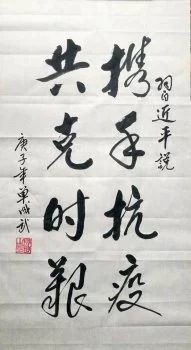 習近平説
携手抗疫
共克时艰
庚子年单成武